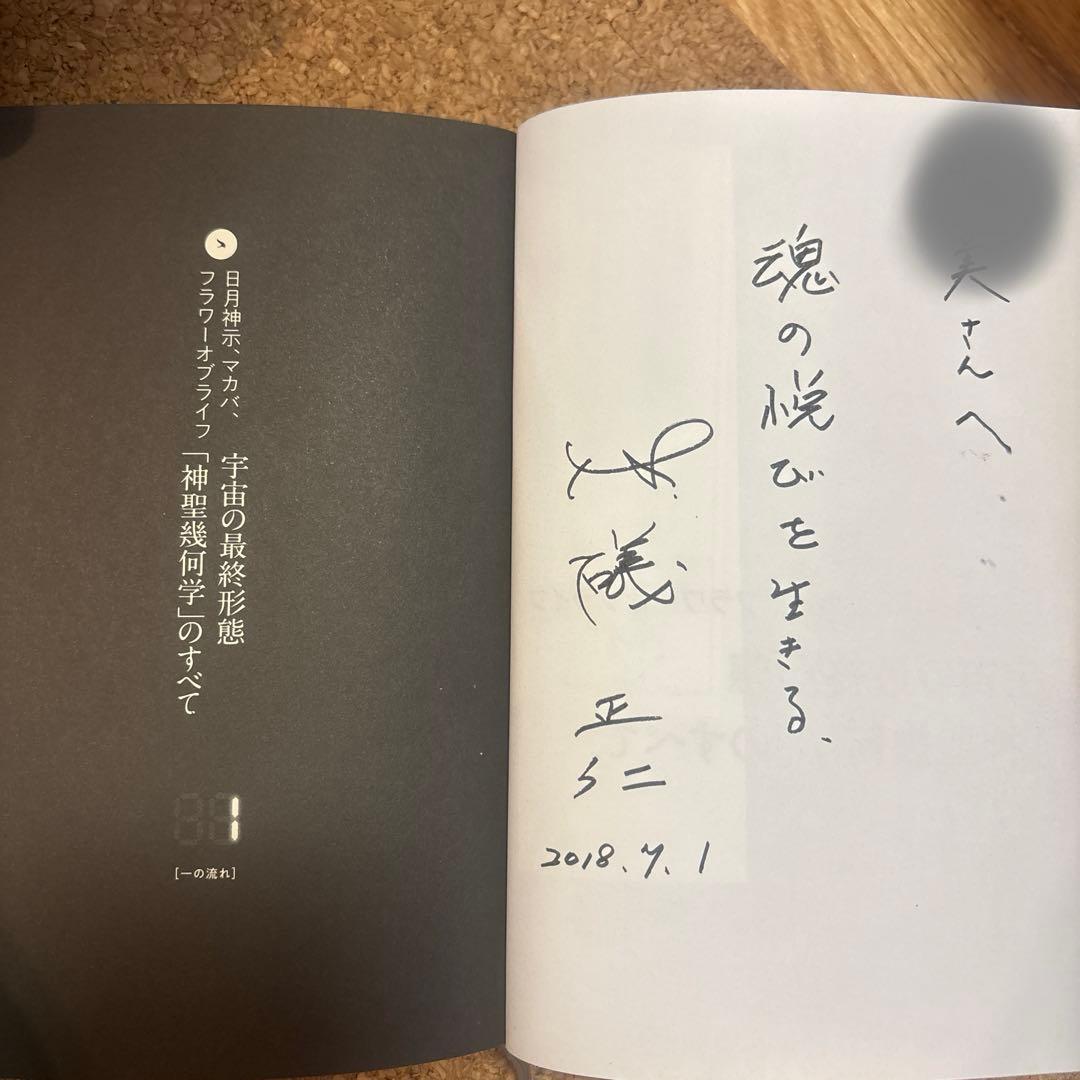 美さんへ
魂の悦びを生きる、
礒
正
仁
2018.7.1
日月神示、マカバ、
フラワーオブライフ
宇宙の最終形態
「神聖幾何学」のすべて
1
[一の流れ]